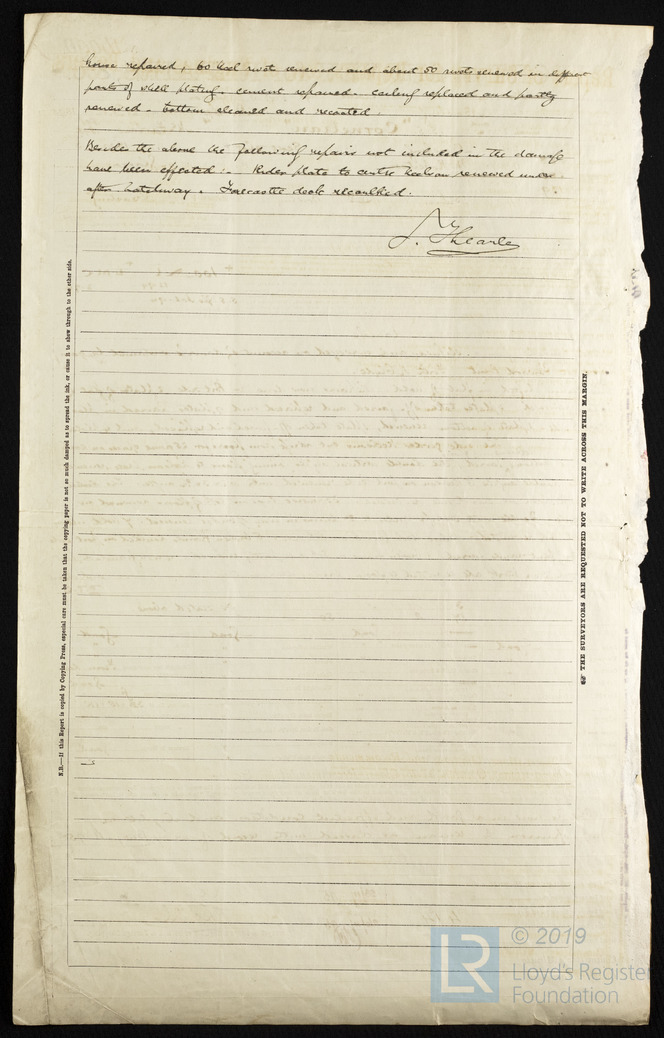 house repaired, 60 keel rivets renewed and about 50 rivets renewed in different
parts of shell plating. cement repaired. ceiling replaced and partly
renewed. bottom cleaned and recoated.
Besides the above the following repairs not included in the damage
have been effected:- Rider plate to centre keelson renewed under
after hatchway. Forecastle deck recaulked.
J. Thearle
N.B.—If this Report is copied by Copying Press, especial care must be taken that the copying paper is not so much damped as to spread the ink, or cause it to show through to the other side.
THE SURVEYORS ARE REQUESTED NOT TO WRITE ACROSS THIS MARGIN.
LR
© 2019
Lloyd's Register
Foundation